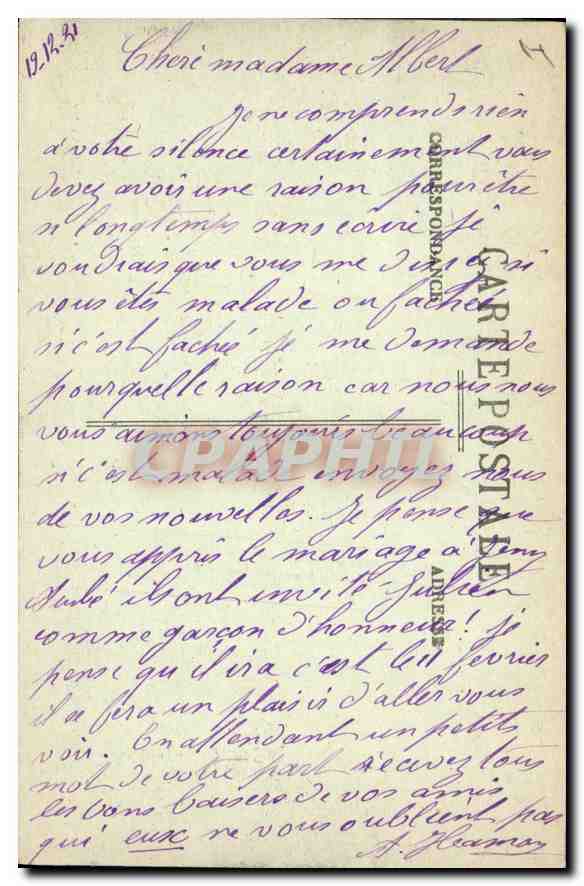 19-12-31
Cheré madame Albert
Je ne comprends rien
à votre silence certainement vous
devez avoir une raison pour être
si longtemps sans écrire je
voudrais que vous me disiez si
vous êtes malade ou fachée
si c'est fachée je me demande
pourquelle raison car nous nous
vous aimons toujours beaucoup
si c'est malade envoyez nous
de vos nouvelles. Je pense que
vous appris le mariage à
ils ont invité Julien
comme garçon d'honneur! je
pense qu'il ira c'est le 11 fevrier
il se fera un plaisir d'aller vous
voir. En attendant un petits
mot de votre part recevez tous
les bons baisers de vos amis
qui eux ne vous oublient pas
A. Hamon
CARTE POSTALE
CORRESPONDANCE
ADRESSE
CPAPHIL